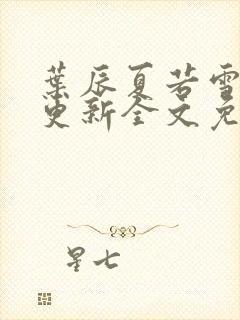 葉辰夏若雪
更新全文免
星七